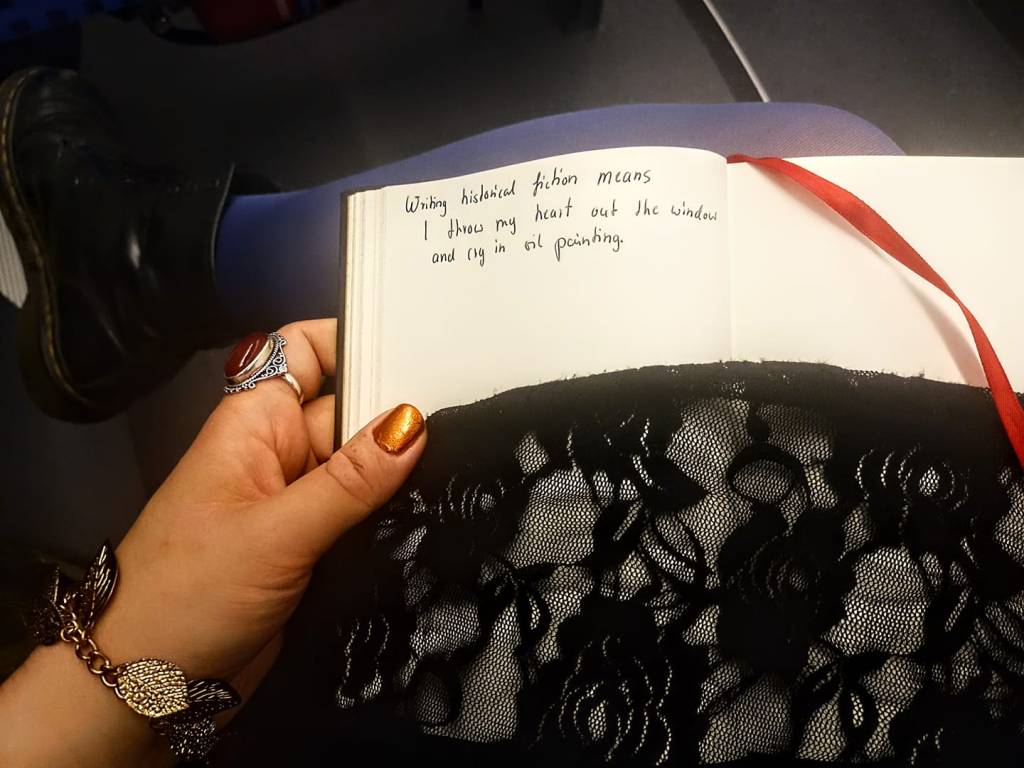 Writing historical fiction means
I throw my heart out the window
and cry in oil painting.